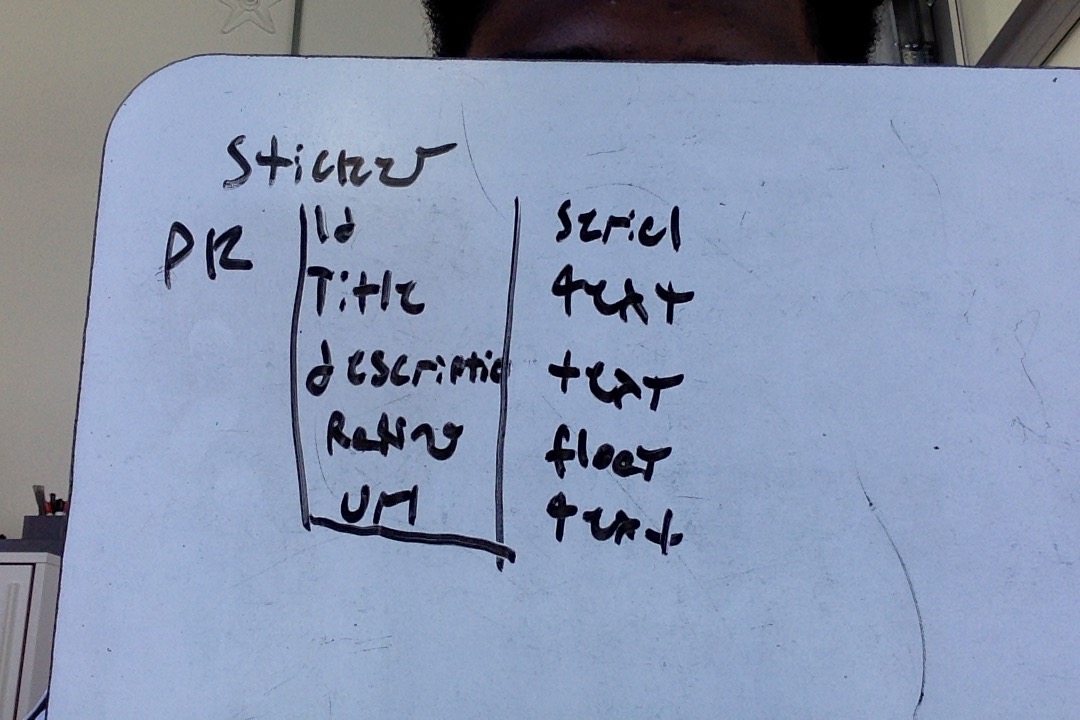 Sticker
PK Id serial
Title text
description text
Rating float
Url text